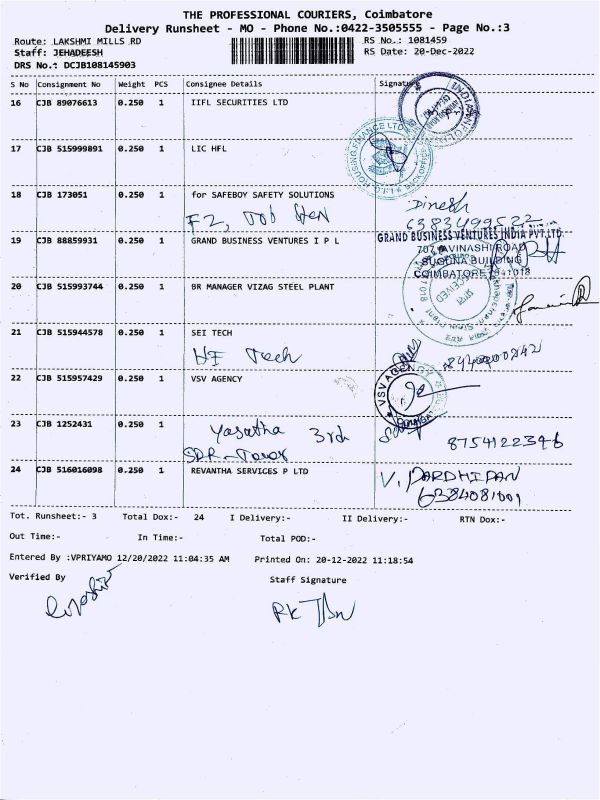 THE PROFESSIONAL COURIERS, Coimbatore
Delivery Runsheet - MO - Phone No.:0422-3505555 - Page No.:3
Route: LAKSHMI MILLS RD
RS No.: 1081459
Staff: JEHADEESH
RS Date: 20-Dec-2022
DRS No.: DCJB108145903
S No Consignment No Weight PCS Consignee Details Signature
16 CJB 89076613 0.250 1 IIFL SECURITIES LTD
17 CJB 515999891 0.250 1 LIC HFL
HOUSING FINANCE LTD
BACK OFFICE
18 CJB 173051 0.250 1 for SAFEBOY SAFETY SOLUTIONS
Dinesh
F2,
6383499522
19 CJB 88859931 0.250 1 GRAND BUSINESS VENTURES I P L
GRAND BUSINESS VENTURES INDIA PVT.LTD.
707 AVINASHI ROAD
SUGUNA BUILDING
COIMBATORE 641018
20 CJB 515993744 0.250 1 BR MANAGER VIZAG STEEL PLANT
RECEIVED
21 CJB 515944578 0.250 1 SEI TECH
Tech
22 CJB 515957429 0.250 1 VSV AGENCY
VSV AGENCY
23 CJB 1252431 0.250 1
3rd
8754122346
24 CJB 516016098 0.250 1 REVANTHA SERVICES P LTD
V. PARDHIPAN
6384081001
Tot. Runsheet:- 3 Total Dox:- 24 I Delivery:- II Delivery:- RTN Dox:-
Out Time:- In Time:- Total POD:-
Entered By :VPRIYAMO 12/20/2022 11:04:35 AM Printed On: 20-12-2022 11:18:54
Verified By Staff Signature